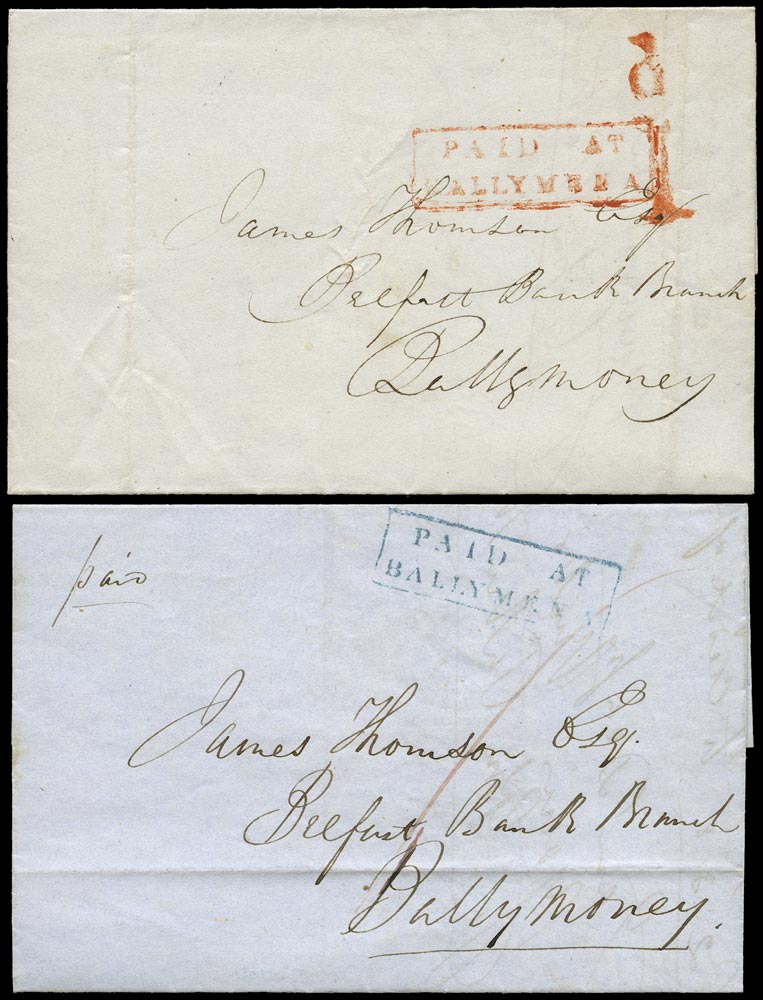 d
PAID AT
BALLYMENA
1
James Thomson Esq
Belfast Bank Branch
Ballymoney
PAID AT
BALLYMENA
paid
James Thomson Esq.
Belfast Bank Branch
Ballymoney.